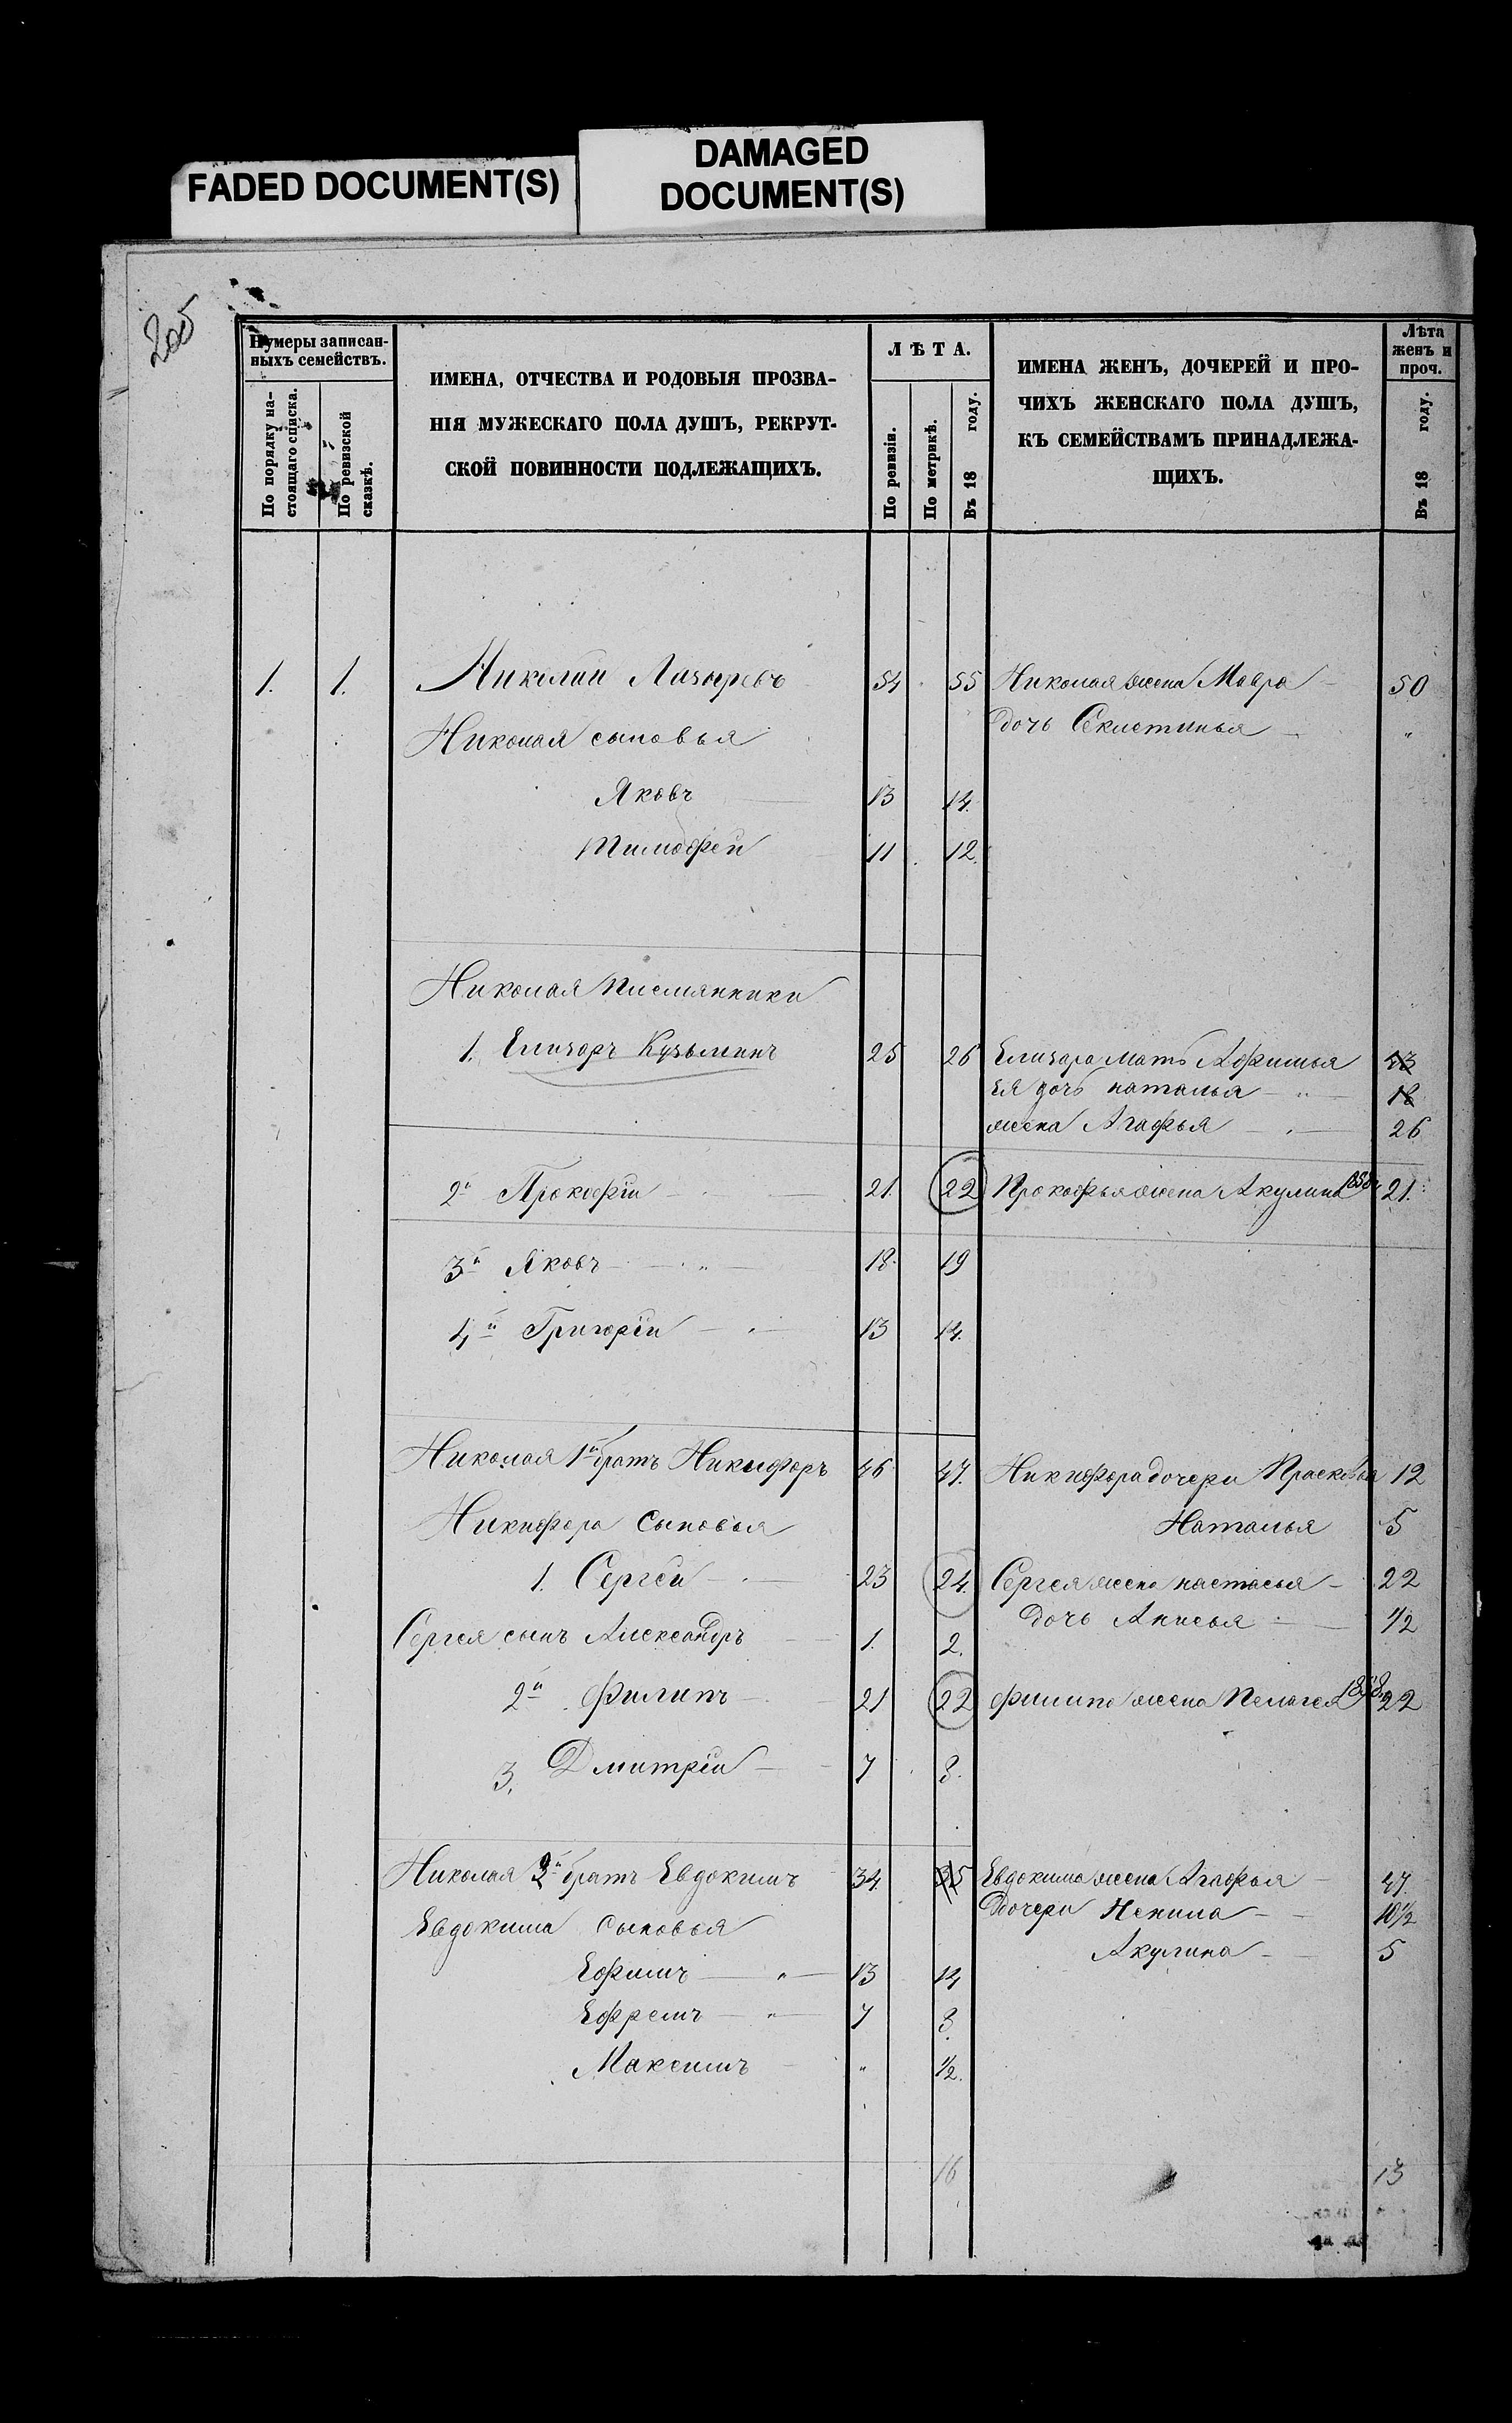 FADED DOCUMENT(S)
DAMAGED
DOCUMENT(S)
205
Нумеры записан-
ныхъ семействъ.
По порядку на-
стоящаго списка.
По ревизской
сказкѣ.
ИМЕНА, ОТЧЕСТВА И РОДОВЫЯ ПРОЗВА-
НІЯ МУЖЕСКАГО ПОЛА ДУШЪ, РЕКРУТ-
СКОЙ ПОВИННОСТИ ПОДЛЕЖАЩИХЪ.
ЛѢТА.
По ревизіи.
По метрикѣ.
Въ 18 году.
ИМЕНА ЖЕНЪ, ДОЧЕРЕЙ И ПРО-
ЧИХЪ ЖЕНСКАГО ПОЛА ДУШЪ,
КЪ СЕМЕЙСТВАМЪ ПРИНАДЛЕЖА-
ЩИХЪ.
Лѣта
женъ и
проч.
Въ 18 году.
1. 1. Николай Лазыревъ 54 55 Николая жена Мавра 50
Николая сыновья дочь Секлетинья "
Яковъ 13 14.
Тимофей 11 12.
Николая племянники
1. Елизаръ Кузьминъ 25 26 Елизара мать Афимья 43
ея дочь наталья 18
жена Агафья 26
2й Прокофій 21. 22 Прокофья жена Акулина 21.
3й Яковъ 18. 19
4й Григорій 13 14.
Николая 1й братъ Никифоръ 46 47. Никифора дочери Прасковья 12
Никифора сыновья Наталья 5
1. Сергей 23 24. Сергея жена настасья 22
Сергея сынъ Александръ 1. 2. дочь Анисья 1/2
2й Филипъ 21 22 Филипа жена Пелагея 1858 22
3. Дмитрій 7 8.
Николая 3й братъ Евдокимъ 34. 35 Евдокима жена Агафья 47.
Евдокима сыновья дочери Ненила 10 1/2
Акулина 5
Ефимъ " 13 14
Ефремъ " 7 8.
Максимъ " 1/2.
16 13